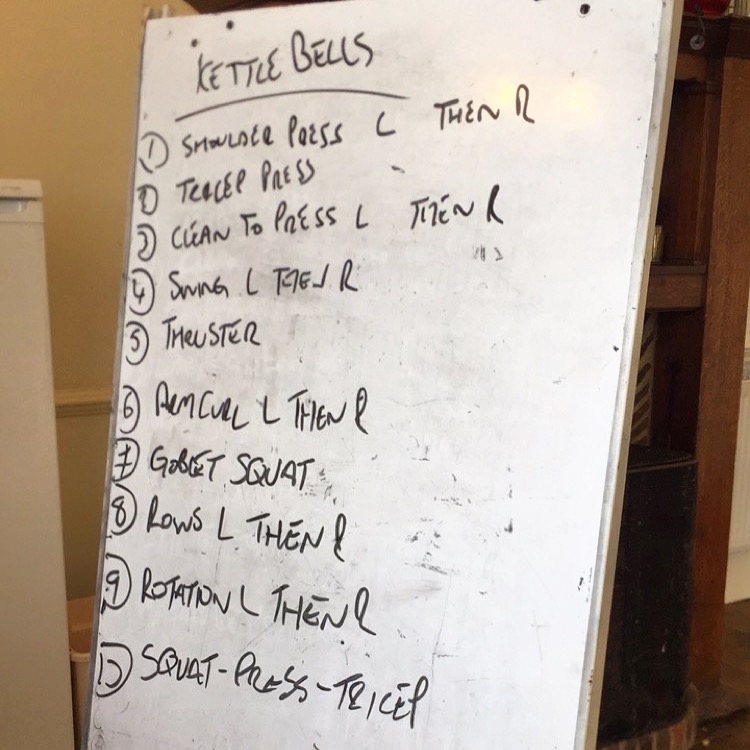 KETTLE BELLS
1 SHOULDER PRESS L THEN R
2 TRICEP PRESS
3 CLEAN TO PRESS L THEN R
4 SWING L THEN R
5 THRUSTER
6 ARM CURL L THEN R
7 GOBLET SQUAT
8 ROWS L THEN R
9 ROTATION L THEN R
10 SQUAT-PRESS-TRICEP